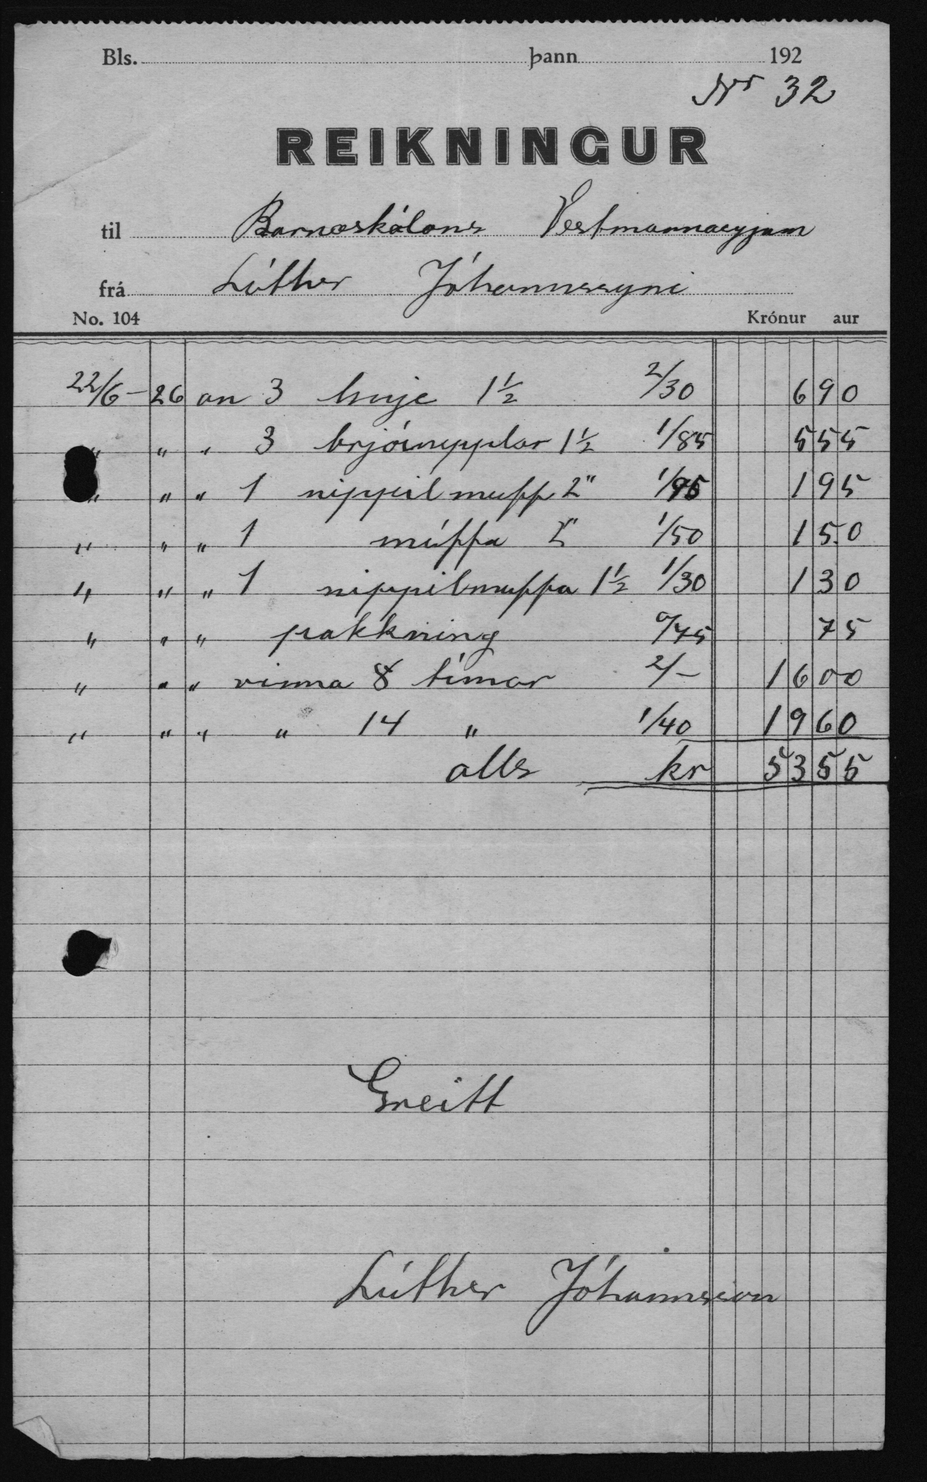 Bls. þann 192
Nr 32
REIKNINGUR
til Barnaskólans Vestmannaeyjum
frá Lúther Jóhannssyni
No. 104 Krónur aur
22/6 - 26 an 3 hnje 1½ 2/30 6 90
" " " 3 brjóstnipplar 1½ 1/85 5 55
" " " 1 nippilmuff 2" 1/95 1 95
" " " 1 múffa 2" 1/50 1 50
" " " 1 nippilmuffa 1½ 1/30 1 30
" " " pakkning 0/75 75
" " " vinna 8 tímar 2/- 16 00
" " " " 14 " 1/40 19 60
alls kr 53 55
Greitt
Lúther Jóhannsson